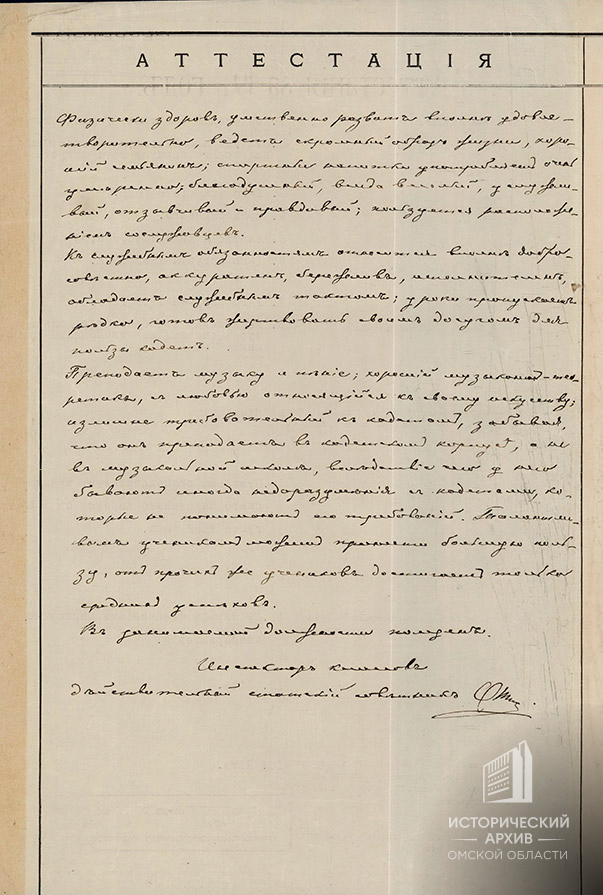 АТТЕСТАЦІЯ
Физически здоровъ, умственно развитъ вполнѣ удовле-
творительно, ведетъ скромный образъ жизни, хоро-
шій семьянинъ; спиртные напитки употребляетъ очень
умѣренно; благодушный, вида, услужли-
вый, отзывчивый и правдивый; пользуется расположе-
ніемъ сослуживцевъ.
Къ служебнымъ обязанностямъ относится вполнѣ добро-
совѣстно, аккуратенъ, бережливъ, исполнителенъ,
обладаетъ служебнымъ тактомъ; уроки пропускаетъ
рѣдко, готовъ жертвовать своимъ досугомъ для
пользы кадетъ.
Преподаетъ музыку и пѣніе; хорошій музыкантъ-тео-
ретикъ, съ любовью относящійся къ своему искусству;
излишне требовательный къ кадетамъ, забывая,
что онъ преподаетъ въ кадетскомъ корпусѣ, а не
въ музыкальной школѣ, вслѣдствіе чего у него
бываютъ иногда недоразумѣнія съ кадетами, ко-
торые не понимаютъ его требованій. Талантли-
вымъ ученикамъ можетъ принести большую поль-
зу, отъ прочихъ же учениковъ достигаетъ только
среднихъ успѣховъ.
Въ занимаемой должности полезенъ.
Инспекторъ классовъ
дѣйствительный статскій совѣтникъ
ИСТОРИЧЕСКИЙ
АРХИВ
ОМСКОЙ ОБЛАСТИ